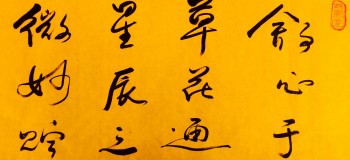 心于
草花通
星辰之
微妙